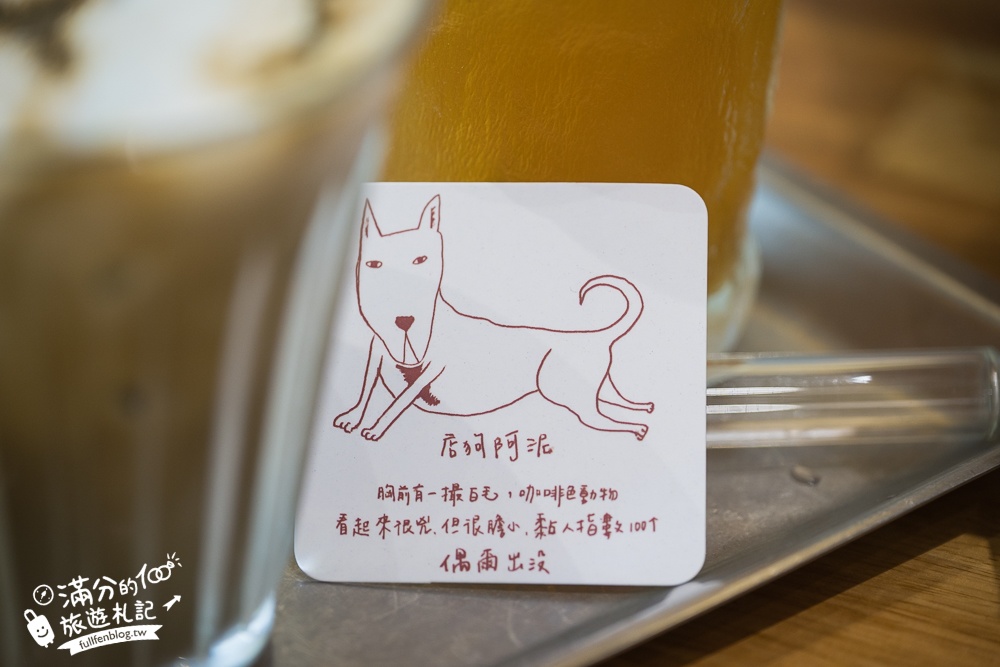 店狗阿泥
胸前有一撮白毛，咖啡色動物
看起來很兇、但很膽小、黏人指數100↑
偶爾出沒
滿分的100
旅遊札記
fullfenblog.tw